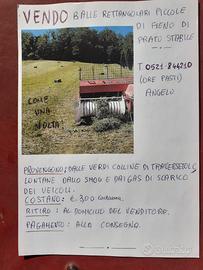 VENDO BALLE RETTANGOLARI PICCOLE
DI FIENO DI
PRATO STABILE
T 0521-844210
(ORE PASTI)
ANGELO
COME
UNA
VOLTA
PROVENGONO: DALLE VERDI COLLINE DI TRAVERSETOLO,
LONTANE DALLO SMOG E DAI GAS DI SCARICO
DEI VEICOLI.
COSTANO: €. 3,00 CADAUNA.
RITIRO: AL DOMICILIO DEL VENDITORE.
PAGAMENTO: ALLA CONSEGNA.
subito